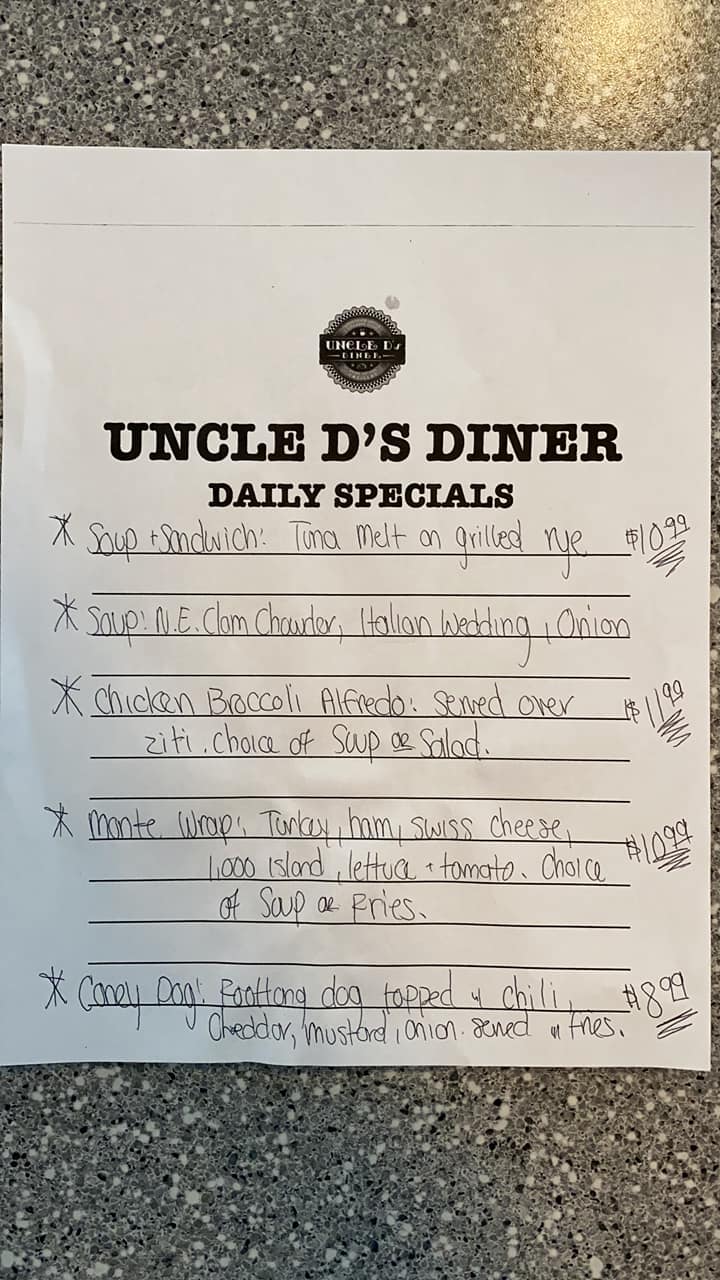 UNCLE D's
DINER
UNCLE D'S DINER
DAILY SPECIALS
* Soup + Sandwich: Tuna Melt on grilled rye $10.99
* Soup: N.E. Clam Chowder, Italian Wedding, Onion
* Chicken Broccoli Alfredo: Served over $11.99
ziti. Choice of Soup or Salad.
* Monte Wrap: Turkey, ham, swiss cheese, $10.99
1,000 Island, lettuce + tomato. Choice
of Soup or Fries.
* Coney Dog: Foottong dog topped w chili, $8.99
Cheddar, mustard, onion. Served w fries.